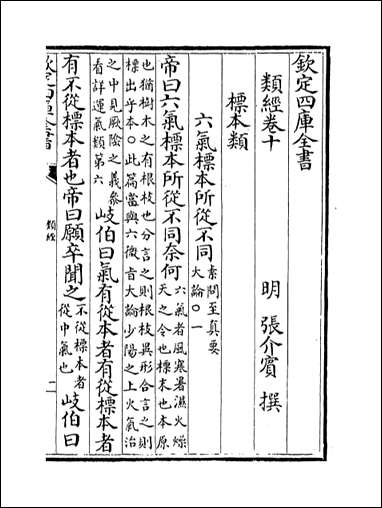 欽定四庫全書
類經卷十 明 張介賓 撰
標本類
六氣標本所從不同 素問至真要
大論〇一
帝曰六氣標本所從不同奈何 六氣者風寒暑濕火燥
天之令也標末也本原
也猶樹木之有根枝也分言之則根枝異形合言之則
標出乎本〇此篇當與六微旨大論少陽之上火氣治
之中見厥陰之義參
看詳運氣類第六 岐伯曰氣有從本者有從標本者
有不從標本者也帝曰願卒聞之 不從標本者
從中氣也 岐伯曰
類經